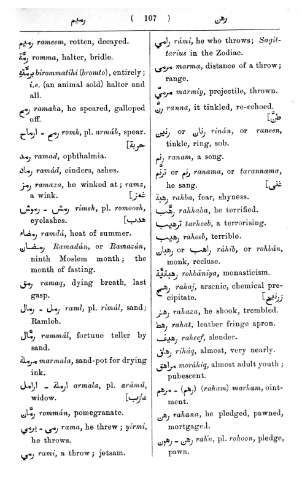 رميم ( 107 ) رهن
رميم rameem, rotten, decayed.
رمّة romna, halter, bridle.
برمّته birommatihi (bromto), entirely;
i.e. (an animal sold) halter and
all.
رمح ramaha, he spoured, galloped
off.
رمح - ارماح romh, pl. armâh, spear.
[حربة]
رمد ramad, ophthalmia.
رماد ramâd, cinders, ashes.
رمز ramaza, he winked at; rama,
a wink. [غمز]
رمش - رموش rimsh, pl. romoosh,
eyelashes. [هدب]
رمضاء ramdâ, heat of summer.
رمضان Ramadân, or Ramazân,
ninth Moslem month; the
month of fasting.
رمق ramaq, dying breath, last
gasp.
رمل - رمال raml, pl. rimâl, sand;
Ramleh.
رمّال rammâl, fortune teller by
sand.
مرملة marmala, sand-pot for drying
ink.
ارملة - ارامل armala, pl. arâmil,
widow. [عازب]
رمّان rommân, pomegranate.
رمى - يرمي rama, he threw; yirmi,
he throws.
رمي rami, a throw; jetsam.
رامي râmi, he who throws; Sagit-
tarius in the Zodiac.
مرمى marma, distance of a throw;
range.
مرمي marmiy, projectile, thrown.
رنّ ranna, it tinkled, re-echoed.
[طنّ]
رنين or رنان rinân, or raneen,
tinkle, ring, sob.
رنم ranam, a song.
ترنّم or رنم ranama, or tarannama,
he sang. [غنّى]
رهبة rahba, fear, shyness.
رهّب rahhaba, he terrified.
ترهيب tarheeb, a terrorising.
رهيب raheeb, terrible.
رهبان or راهب râhib, or rohbân,
monk, recluse.
رهبانيّة rohbâniya, monasticism.
رهج rahaj, arsenic, chemical pre-
cipitate. [زرنيخ]
رهز rahaza, he shook, trembled.
رهط rahat, leather fringe apron.
رهيف raheef, slender.
رهاق rihâq, almost, very nearly.
مراهق morâhiq, almost adult youth;
pubescent.
مرهم (رهم) (raham) marham, oint-
ment.
رهن rahana, he pledged, pawned,
mortgaged.
رهن - رهون rahn, pl. rohoon, pledge,
pawn.